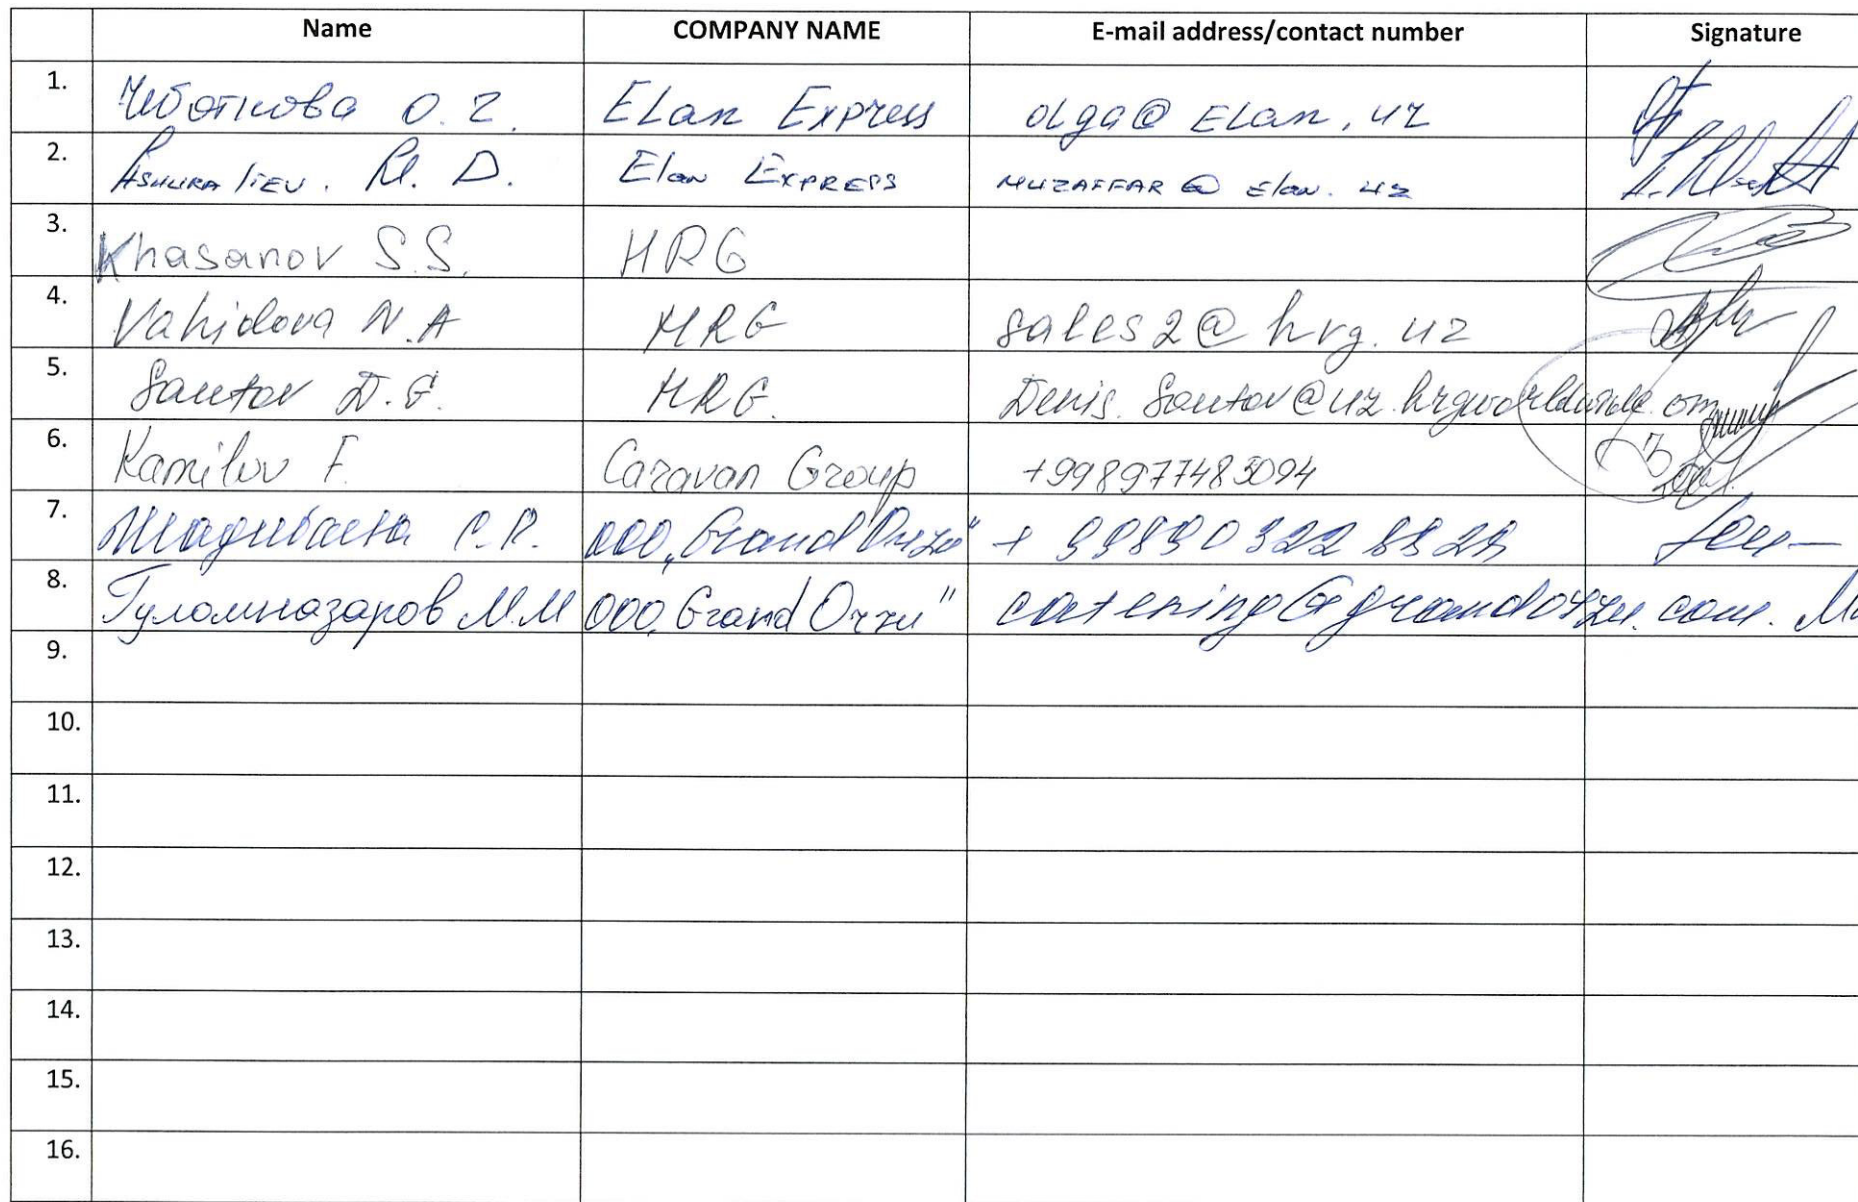 Name COMPANY NAME E-mail address/contact number Signature
1. О. Г. ELan Express olga@ELan.uz
2. Ashuraliev. M. D. Elan Express muzaffar@elan.uz
3. Khasanov S.S. HRG
4. Vahidova N.A HRG sales2@hrg.uz
5. Sautov D.G. HRG. Denis.Sautov@uz.hrgworldwide.com
6. Kamilov F. Caravan Group +998977485094
7. С.Р. ООО „Grand Orzu" +99890322 88 29
8. Гуломназаров М.М ООО „Grand Orzu" catering@grandorzu.com.
9.
10.
11.
12.
13.
14.
15.
16.